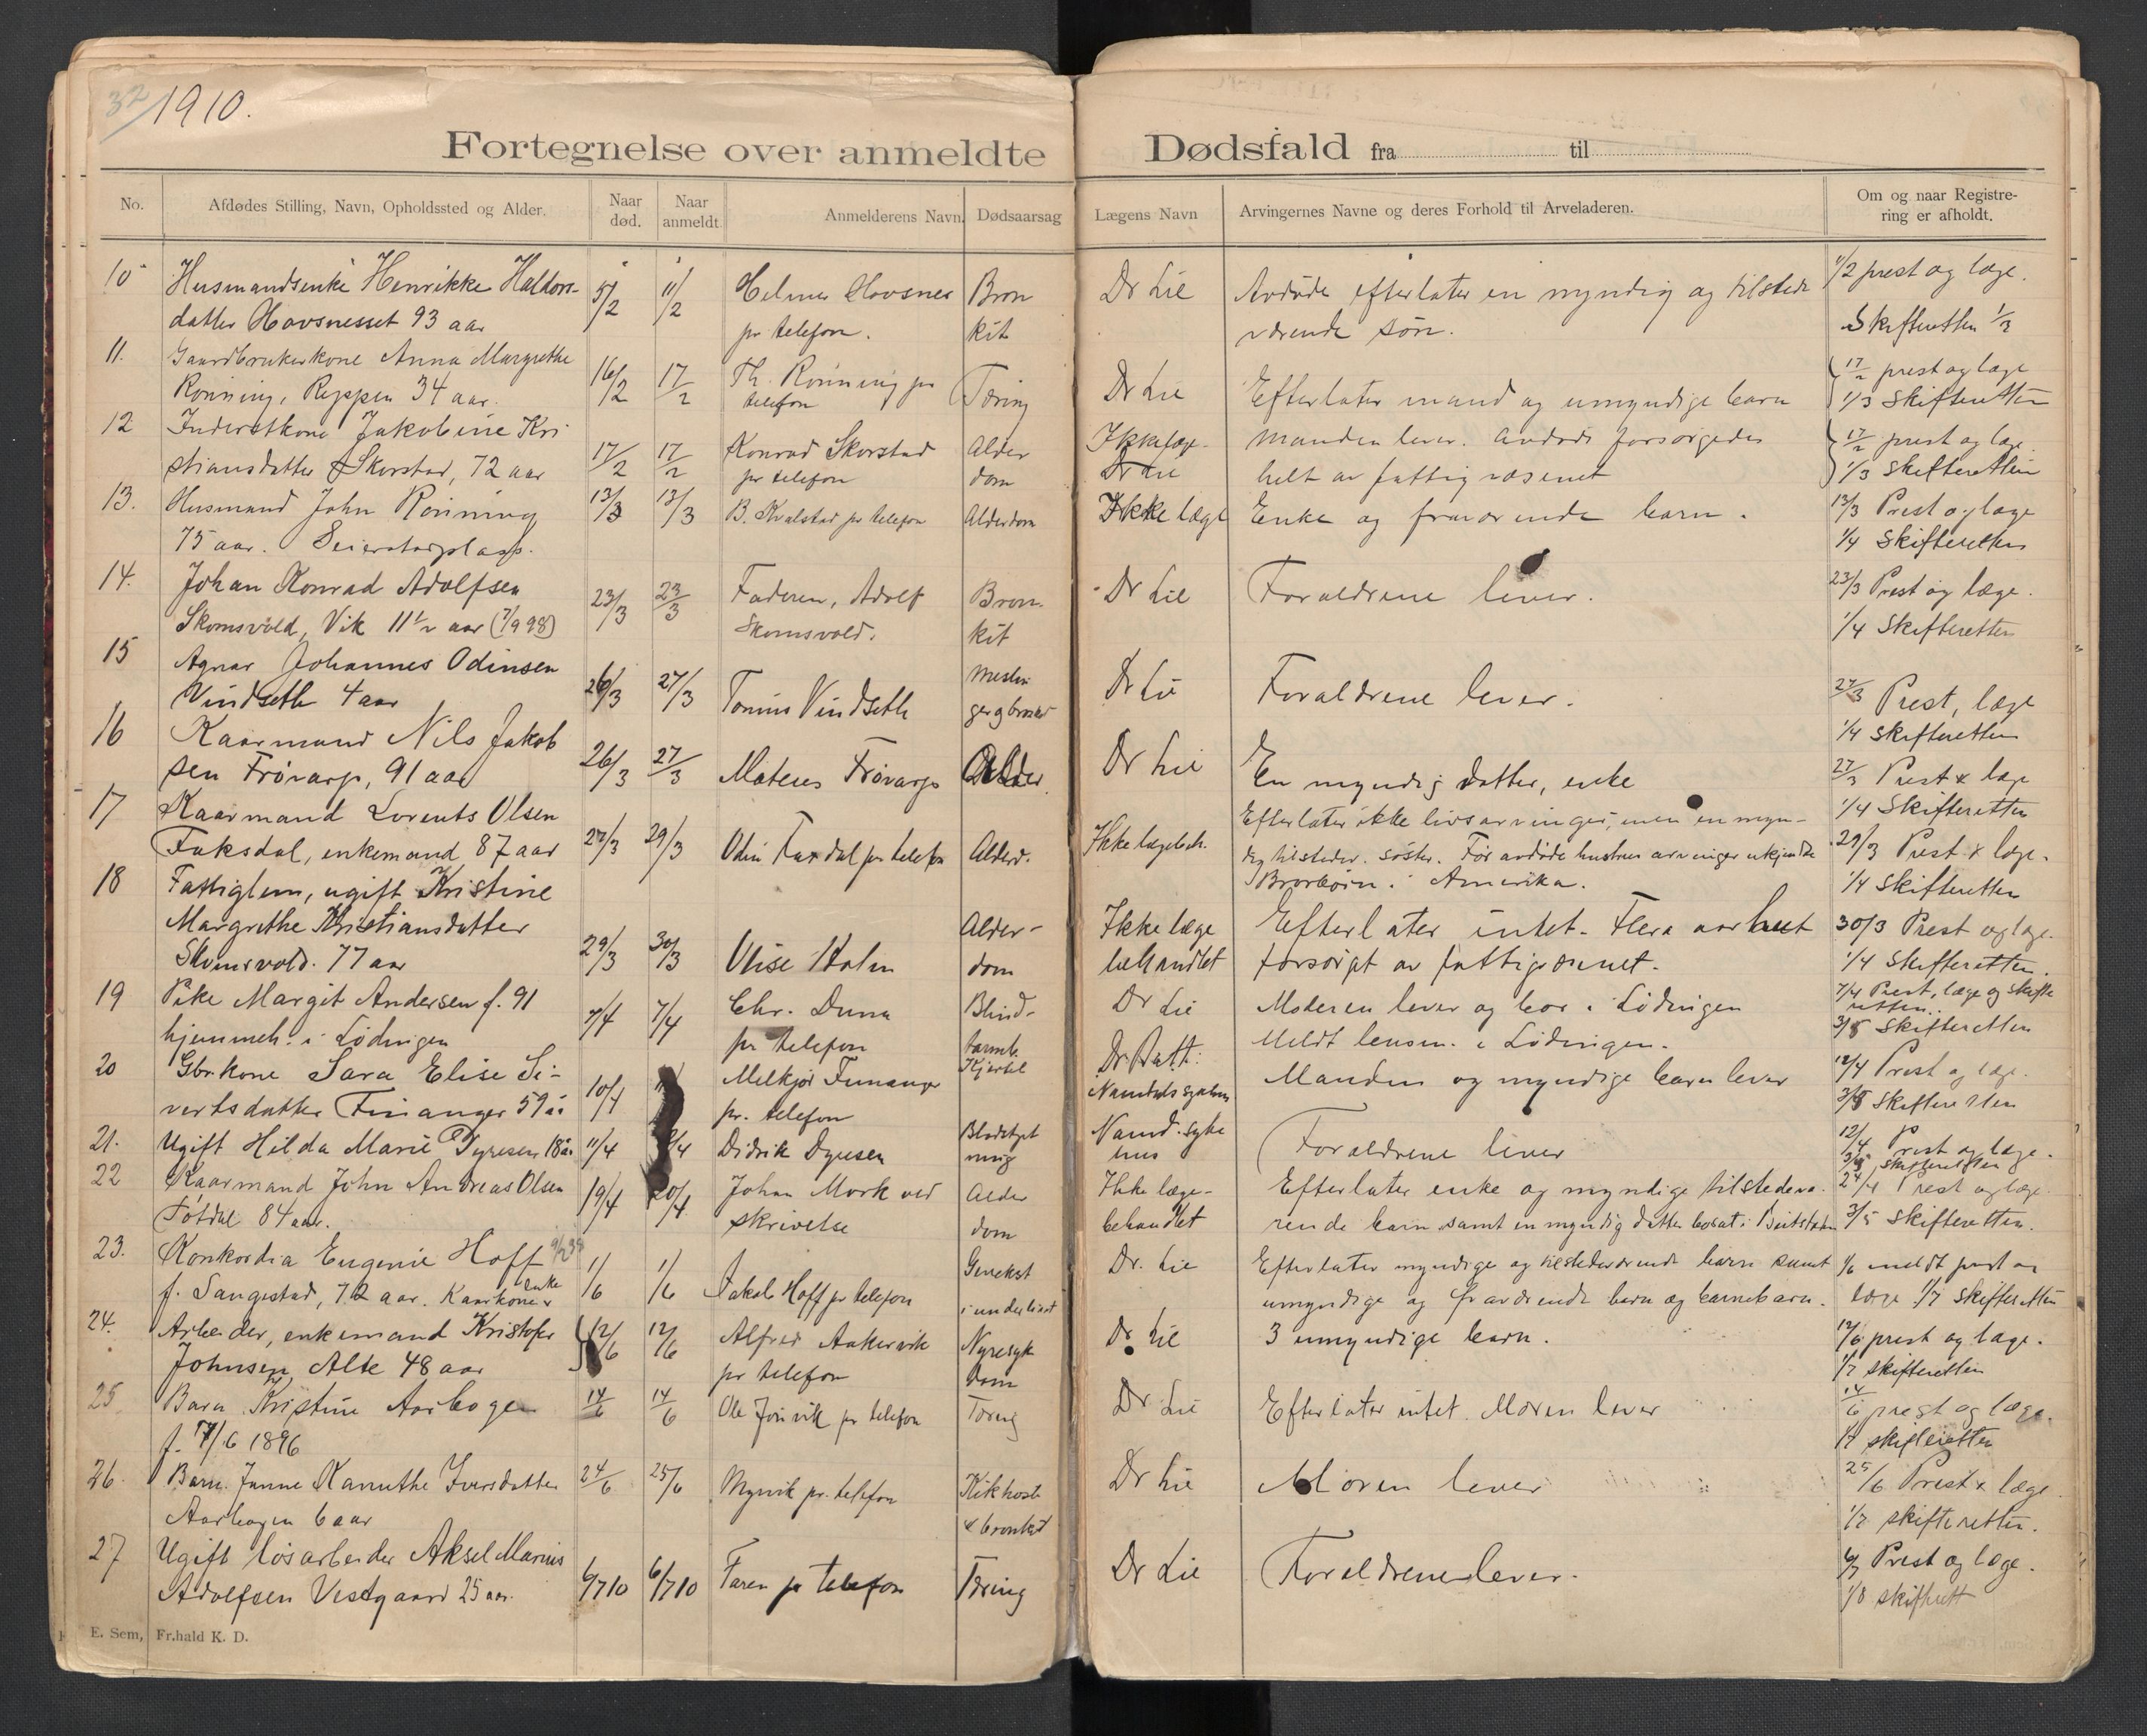 32/1910.
Fortegnelse over anmeldte Dødsfald fra til
No.
Afdødes Stilling, Navn, Opholdssted og Alder.
Naar død.
Naar anmeldt
Anmelderens Navn.
Dødsaarsag
Lægens Navn
Arvingernes Navne og deres Forhold til Arveladeren.
Om og naar Registre-
ring er afholdt.
10 Husmandsenke Henrikke Haldors- 5/2 11/2 Helmer Hovsnes Bron Dr Lie Avdøde efterlater en myndig og tilstede 1/2 prest og læge.
datter Hovsnesset 93 aar pr telefon. kit værende søn. Skifteretten 1/3
11. Gaardbrukerkone Anna Margrethe 16/2 17/2 Th. Rønning pr Tæring Dr Lie Efterlater mand og umyndige barn 17/2 prest og læge
Rønning, Reppen 34 aar. telefon 1/3 Skifteretten
12 Inderstkone Jakobine Kri 17/2 17/2 Konrad Skorstad Alder Ikke læge- Manden lever. Avdøde forsørgedes 17/2 prest og læge
stiansdatter Skorstad, 72 aar pr telefon dom Dr Lie helt av fattigvæsenet 1/3 Skifteretten
13. Husmand John Rønning 13/3 13/3 B. Kvalstad pr telefon Alderdom Ikke læge Enke og fraværende barn. 13/3 Prest og læge
75 aar. Seierstadplass. 1/4 Skifteretten
14. Johan Konrad Adolfsen 23/3 23/3 Faderen, Adolf Bron- Dr Lie Forældrene lever. 23/3 Prest og læge.
Skomsvold, Vik 11 1/2 aar (7/9 98) Skomsvold. kit 1/4 Skifteretten
15 Agnar Johannes Odinsen 26/3 27/3 Tonius Vindseth Meslin Dr Lie Forældrene lever. 27/3 Prest, læge
Vindseth 4 aar ger og bronkit 1/4 skifteretten
16 Kaarmand Nils Jakob 26/3 27/3 Mateus Frøvarp Alder. Dr Lie En myndig datter, enke 27/3 Prest & læge
sen Frøvarp, 91 aar 1/4 Skifteretten
17 Kaarmand Lorents Olsen 27/3 29/3 Odin Faksdal pr telefon Alderd. Ikke lægebeh. Efterlater ikke livsarvinger, men en myn- 29/3 Prest & læge.
Faksdal, enkemand 87 aar dig tilstedev. søster. For avdøde hustrus arvinger ukjendte 1/4 Skifteretten
Brorbørn i Amerika.
18 Fattiglem, ugift Kristine
Margrethe Kristiansdatter 29/3 30/3 Olise Holm Alder- Ikke læge Efterlater intet. Flere aar helt 30/3 Prest og læge.
Skomsvold. 77 aar dom behandlet forsørget av fattigvæsenet. 1/4 Skifteretten.
19 Pike Margit Andersen f. 91 7/4 7/4 Chr. Duna Blind- Dr Lie Moderen lever og bor i Lødingen 7/4 Prest, læge og skifte
retten.
hjemmeh. i Lødingen pr telefon tarmb. Meldt lensm. i Lødingen. 3/5 skifteretten
20 Gbr.kone Sara Elise Si- 10/4 Melkjor Finanger Hjertel Dr Ratt. Manden og myndige barn lever 12/4 Prest og læge.
vertsdatter Finanger 59 aar pr. telefon Namdals sykehus 3/5 Skifteretten
21. Ugift Hilda Marie Dyresen 18 aar 11/4 Didrik Dyresen Blodstyrt Namd. syke Forældrene lever 12/4 Prest og læge.
ning hus 3/5 skifteretten
22 Kaarmand John Andreas Olsen 19/4 20/4 Johan Mork ved Alder Ikke læge- Efterlater enke og myndige tilstedevæ- Prest og læge
Føtdal 84 aar. skrivelse dom behandlet rende barn samt en myndig datter bosat i Beitstaden 3/5 skifteretten.
23. Konkordia Eugenie Hoff 1/6 1/6 Jakob Hoff pr telefon Gevekst Dr. Lie Efterlater myndige og tilstedeværende barn samt 1/6 meldt prest og
f. Sangestad, 72 aar. Kaarkone enke i underlivet umyndige og fraværende barn og barnebarn. læge 1/7 skifteretten
24. Arbeider, enkemand Kristofer 12/6 12/6 Alfred Aakervik Nyresyk Dr. Lie 3 umyndige barn. 12/6 prest og læge.
Johnsen, Alte 48 aar pr telefon dom 1/7 skifteretten
25 Barn Kristine Aarbogen 14/6 14/6 Ole Jønvik pr telefon Tæring Dr Lie Efterlater intet. Moren lever 14/6 prest og læge.
f. 17/6 1896 1/7 skifteretten
26. Barn Janne Kanuthe Iversdatter 24/6 25/6 Myrvik pr. telefon Kikhoste Dr Lie Moren lever 25/6 Prest & læge.
Aarbogen 6 aar & bronkit 1/7 skifteretten.
27 Ugift løsarbeider Aksel Marius 6/7 10 6/7 10 Faren pr telefon Tæring Dr Lie Forældrene lever. 6/7 Prest og læge.
Adolfsen Vestgaard 25 aar. 1/8 skifterett
E. Sem, Fr.hald K. D.